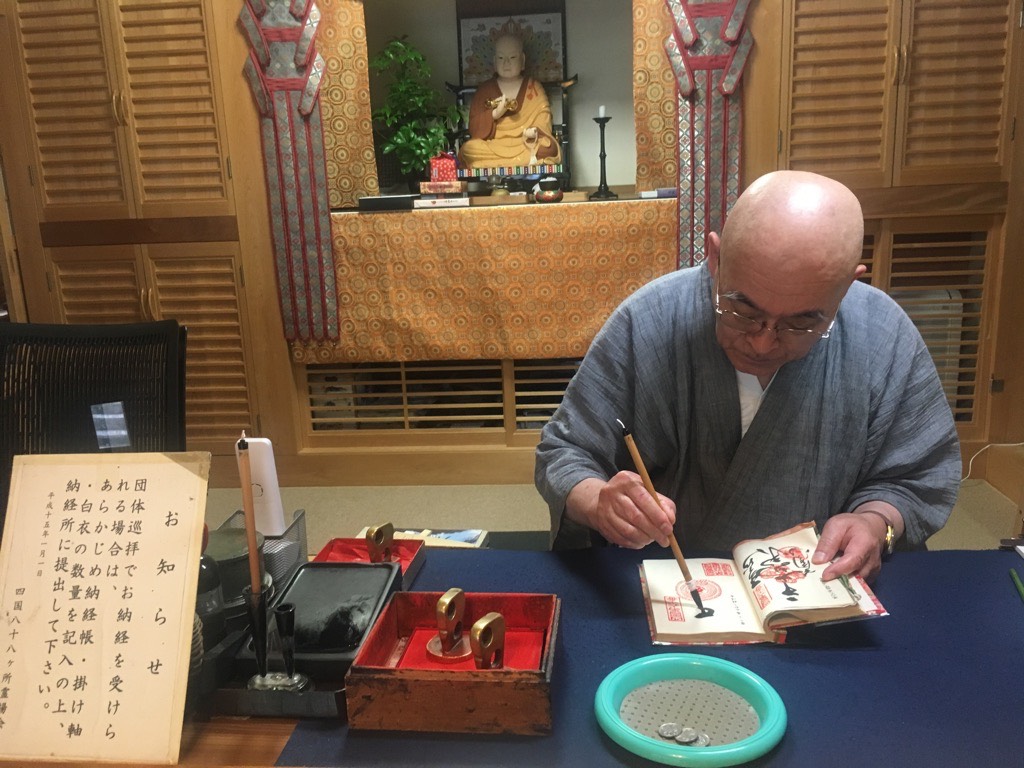 お知らせ
団体巡拝でお納経を受けら
れる場合は、
あらかじめ納経帳・掛け軸
・白衣の数量を記入の上、
納経所に提出して下さい。
平成十五年一月一日
四国八十八ヶ所霊場会